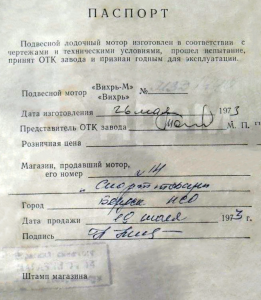 ПАСПОРТ
Подвесной лодочный мотор изготовлен в соответствии с
чертежами и техническими условиями, прошел испытание,
принят ОТК завода и признан годным для эксплуатации.
Подвесной мотор «Вихрь-М» №
«Вихрь»
Дата изготовления 26 мая 1973
Представитель ОТК завода М. П.
Розничная цена
Магазин, продавший мотор,
его номер N 14
"Спорттовары"
Город Бердск НСО
Дата продажи 19 июля 1973 г
Подпись
Штамп магазина